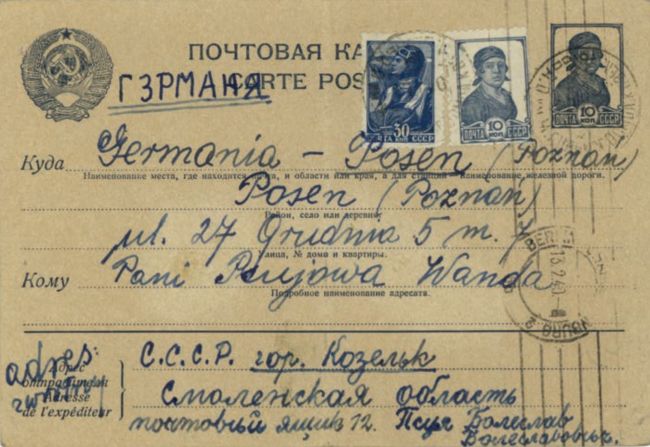 ПОЧТОВАЯ КА
CARTE POS
ГЗРМАНА
30
ПОЧТА СССР
10 КОП
ПОЧТА СССР
10 КОП
Куда Germania – Posen (Poznań)
Наименование места, где находится почта, и области или края, а для станций — наименование железной дороги.
Posen (Poznań)
Район, село или деревня
ul. 27 Grudnia 5 m.
Улица, № дома и квартиры.
Кому Pani Wanda
Подробное наименование адресата.
13.2.40
adres:
Адрес
отправителя
Adresse
de l'expéditeur
zwrotny
С.С.С.Р. гор. Козельк
Смоленская область
почтовый ящик 12. Болеслав